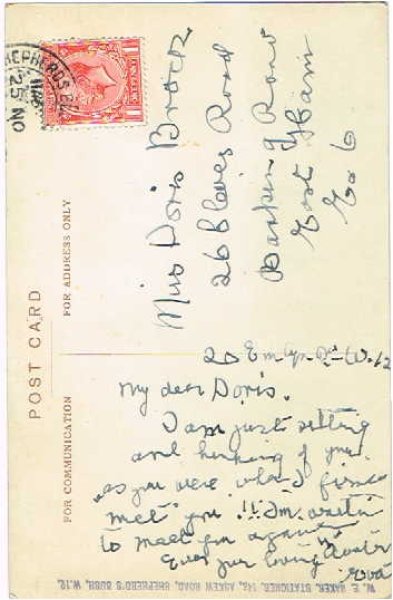 POST CARD
FOR COMMUNICATION
FOR ADDRESS ONLY
SHEPHERDS B
25 NO
Miss Doris Brock
26 Cleves Road
Barking Road
East Ham
E.6
20 Emlyn Rd W.12
My dear Doris.
I am just sitting
and thinking of you.
"as you were when I first
met" you!! Im waitin
to meet you again
Ever your loving
Eva
W. E. BAKER, STATIONER, 142, ASKEW ROAD, SHEPHERD'S BUSH, W.12.